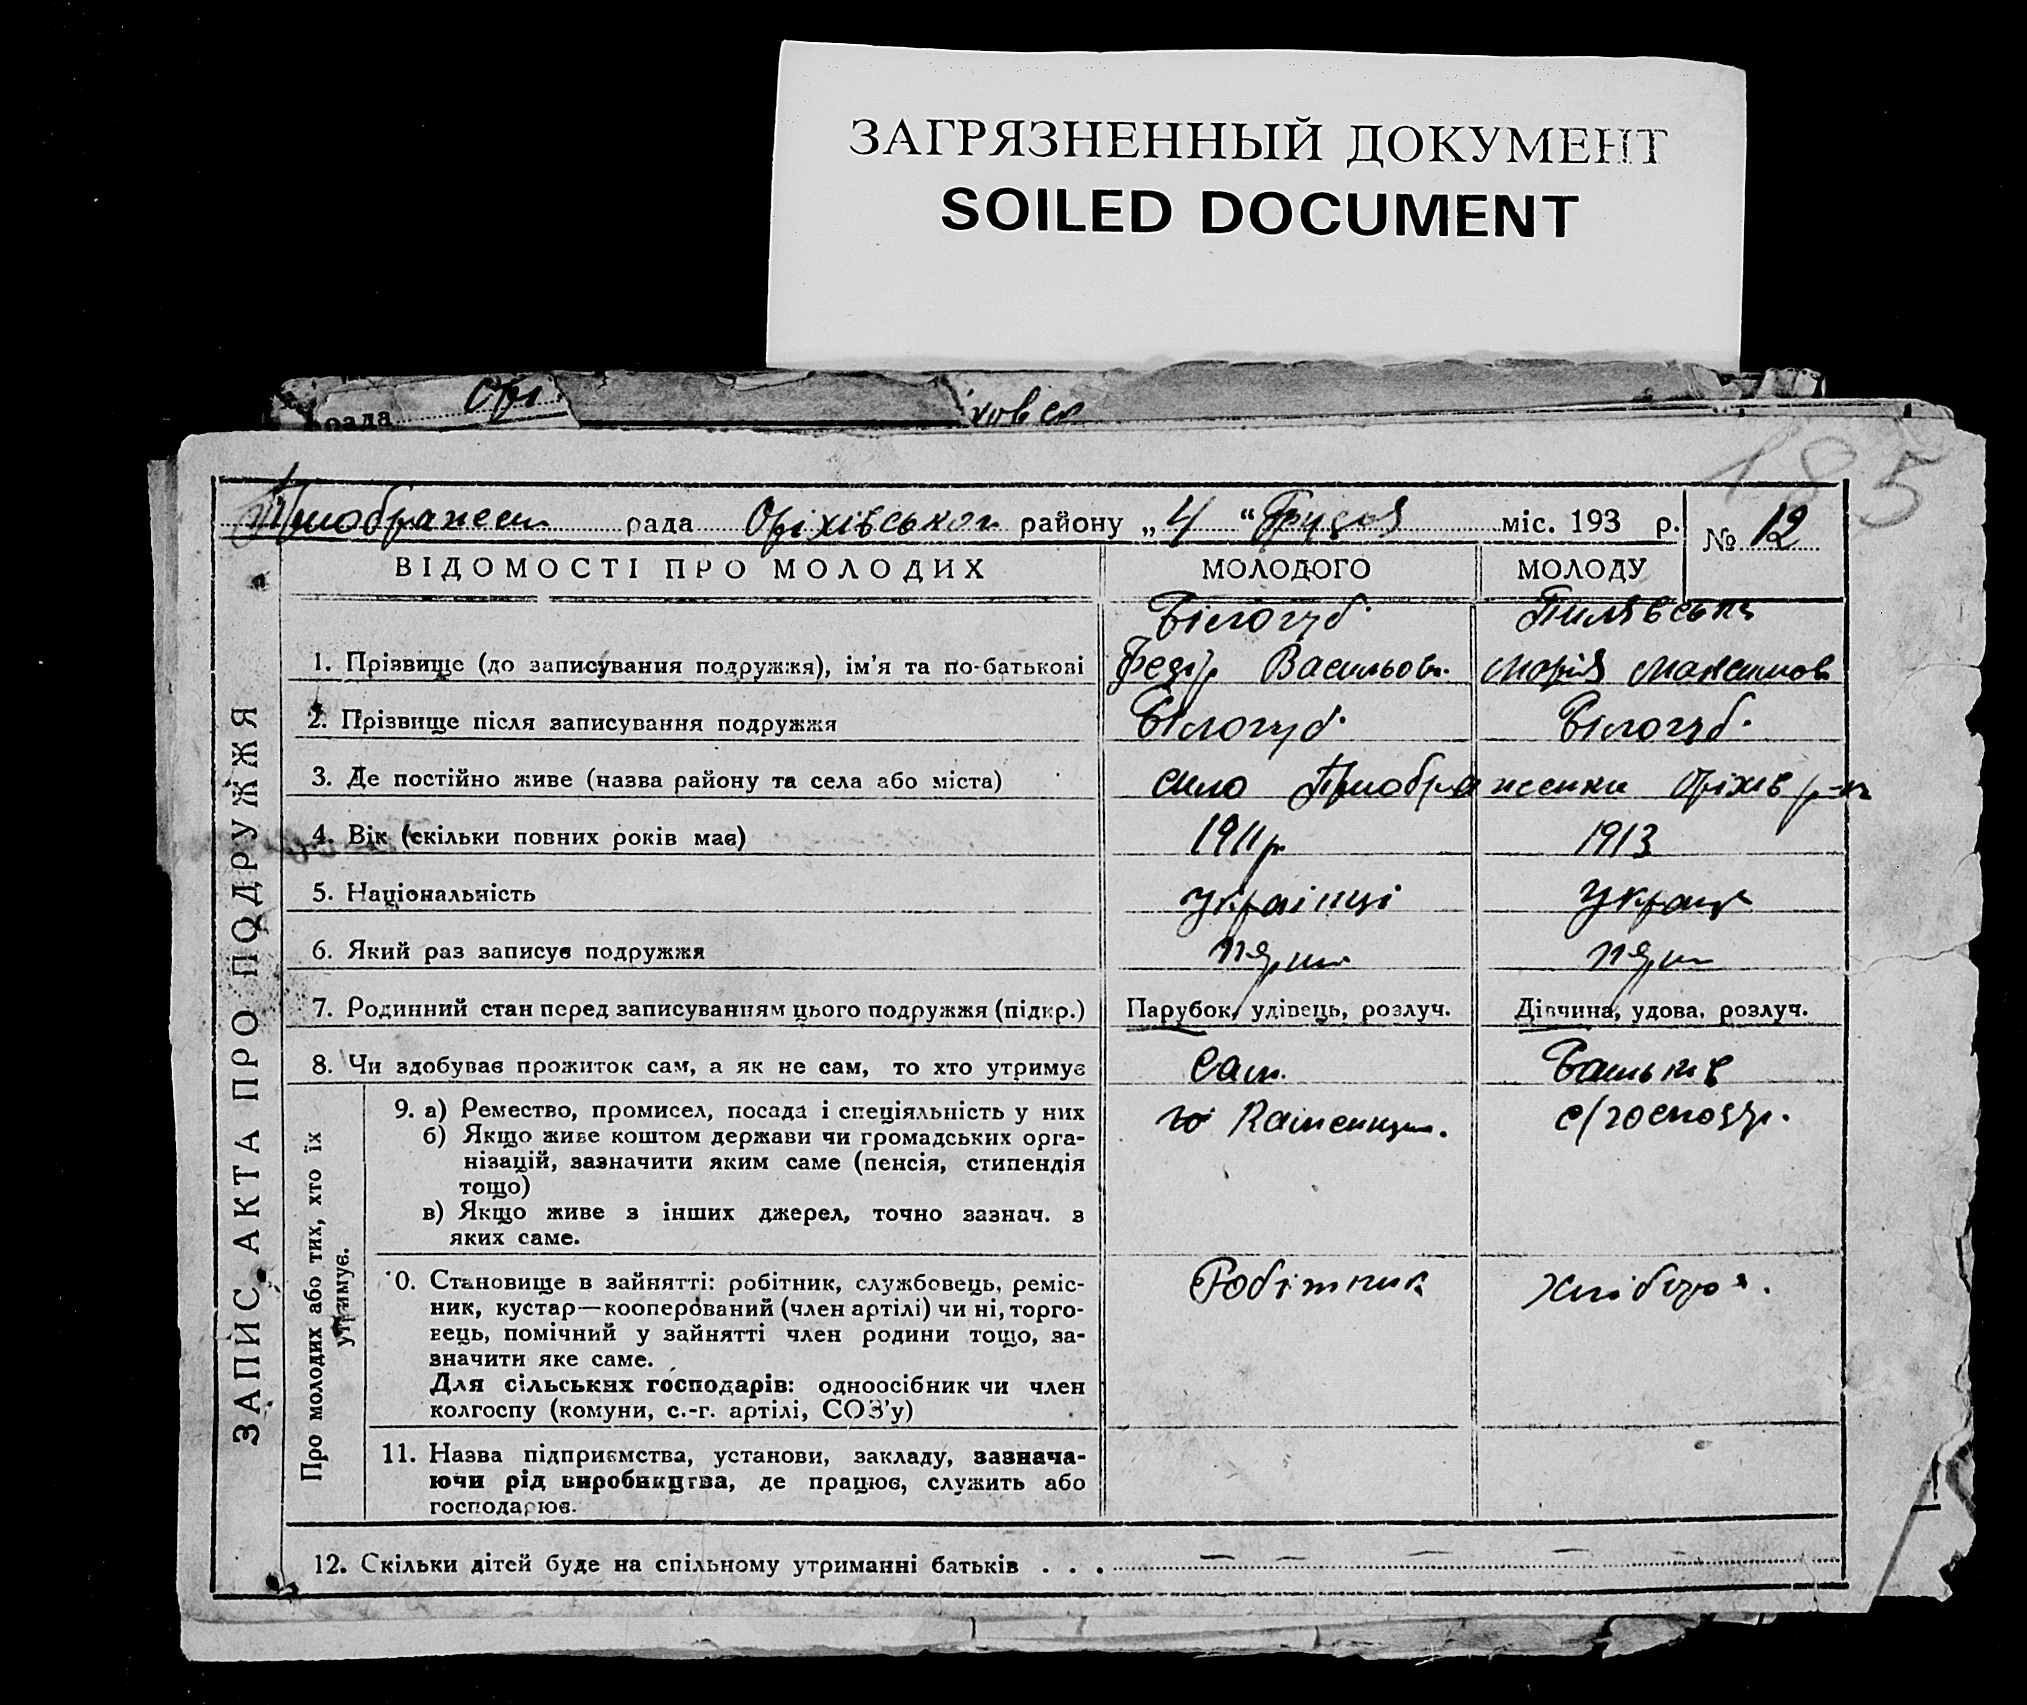 ЗАГРЯЗНЕННЫЙ ДОКУМЕНТ
SOILED DOCUMENT
рада Орі
ховск
185
рада Оріхівського району „4“ Грудня міс. 193 р. № 12
ВІДОМОСТІ ПРО МОЛОДИХ МОЛОДОГО МОЛОДУ
Білогуб. Пилявська
1. Прізвище (до записування подружжя), ім’я та по-батькові Федір Васильов. Марія Максимов
2. Прізвище після записування подружжя Білогуб. Білогуб.
3. Де постійно живе (назва району та села або міста) село Оріхів р-н
4. Вік (скільки повних років має) 1911р 1913
5. Національність українці
6. Який раз записує подружжя
7. Родинний стан перед записуванням цього подружжя (підкр.) Парубок, удівець, розлуч. Дівчина, удова, розлуч.
8. Чи здобуває прожиток сам, а як не сам, то хто утримує Сам.
9. а) Ремество, промисел, посада і спеціяльність у них с/господр.
б) Якщо живе коштом держави чи громадських орга-
нізацій, зазначити яким саме (пенсія, стипендія
тощо)
в) Якщо живе з інших джерел, точно зазнач. з
яких саме.
0. Становище в зайнятті: робітник, службовець, реміс- Робітник
ник, кустар—кооперований (член артілі) чи ні, торго-
вець, помічний у зайнятті член родини тощо, за-
значити яке саме.
Для сільських господарів: одноосібник чи член
колгоспу (комуни, с.-г. артілі, СОЗ’у)
11. Назва підприємства, установи, закладу, зазнача-
ючи рід виробництва, де працює, служить або
господарює.
12. Скільки дітей буде на спільному утриманні батьків . . . — — — — —
ЗАПИС АКТА ПРО ПОДРУЖЖЯ
Про молодих або тих, хто їх
утримує.